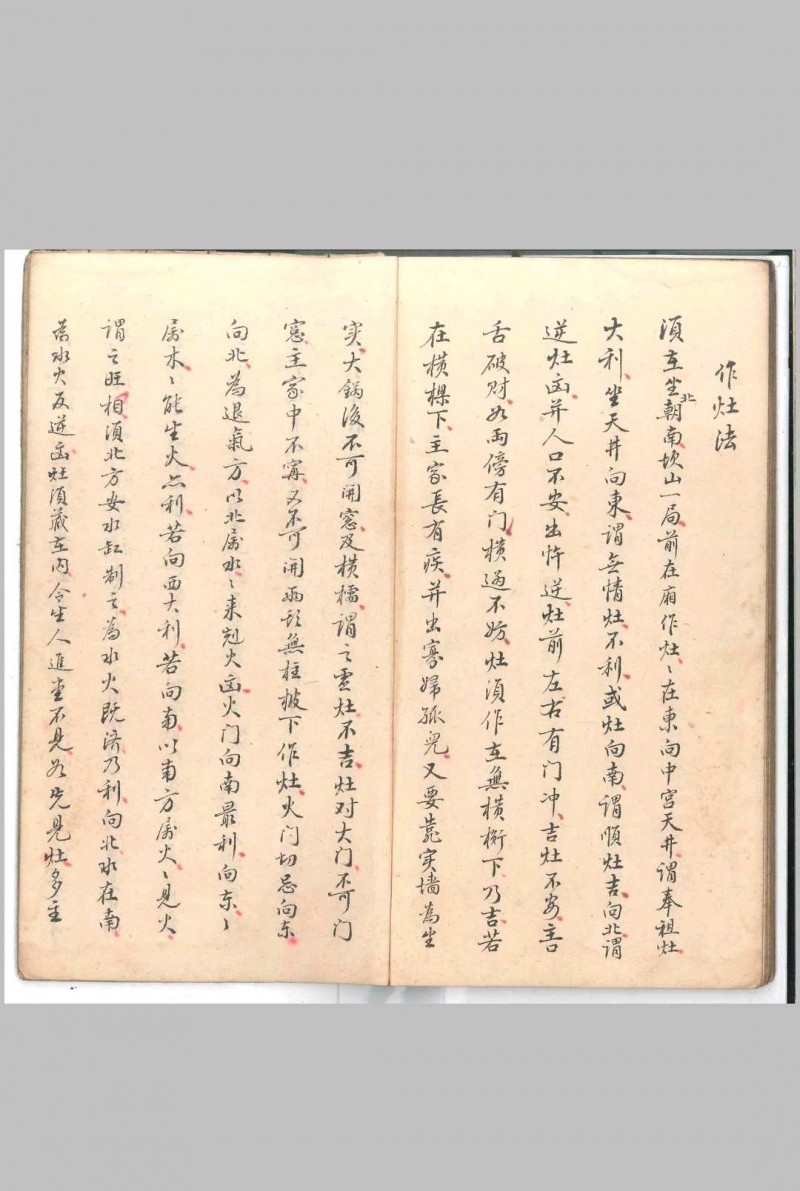 作灶法
須在坐北朝南坎山一局前在廂作灶〻在東向中宮天井謂奉祖灶
大利坐天井向東謂無情灶不利或灶向南謂順灶吉向北謂
逆灶凶并人口不安出忤逆灶前左右有门冲吉灶不安主口
舌破财如両傍有门横過不妨灶須作在無横桁下乃吉若
在横樑下主家長有疾并出寡婦孤兒又要靠实墙為坐
实大锅後不可開窓及横檑謂之虚灶不吉灶对大门不可门
窓主家中不寜又不可開兩頭無柱披下作灶火门切忌向东
向北為退氣方以北属水〻来尅火凶火门向南最利向东〻
属木〻能生火亦利若向西大利若向南以南方属火〻見火
謂之旺相須北方安水缸制之為水火既济乃利向北水在南
為水火反逆凶灶須藏在内令生人進堂不見如先見灶多主